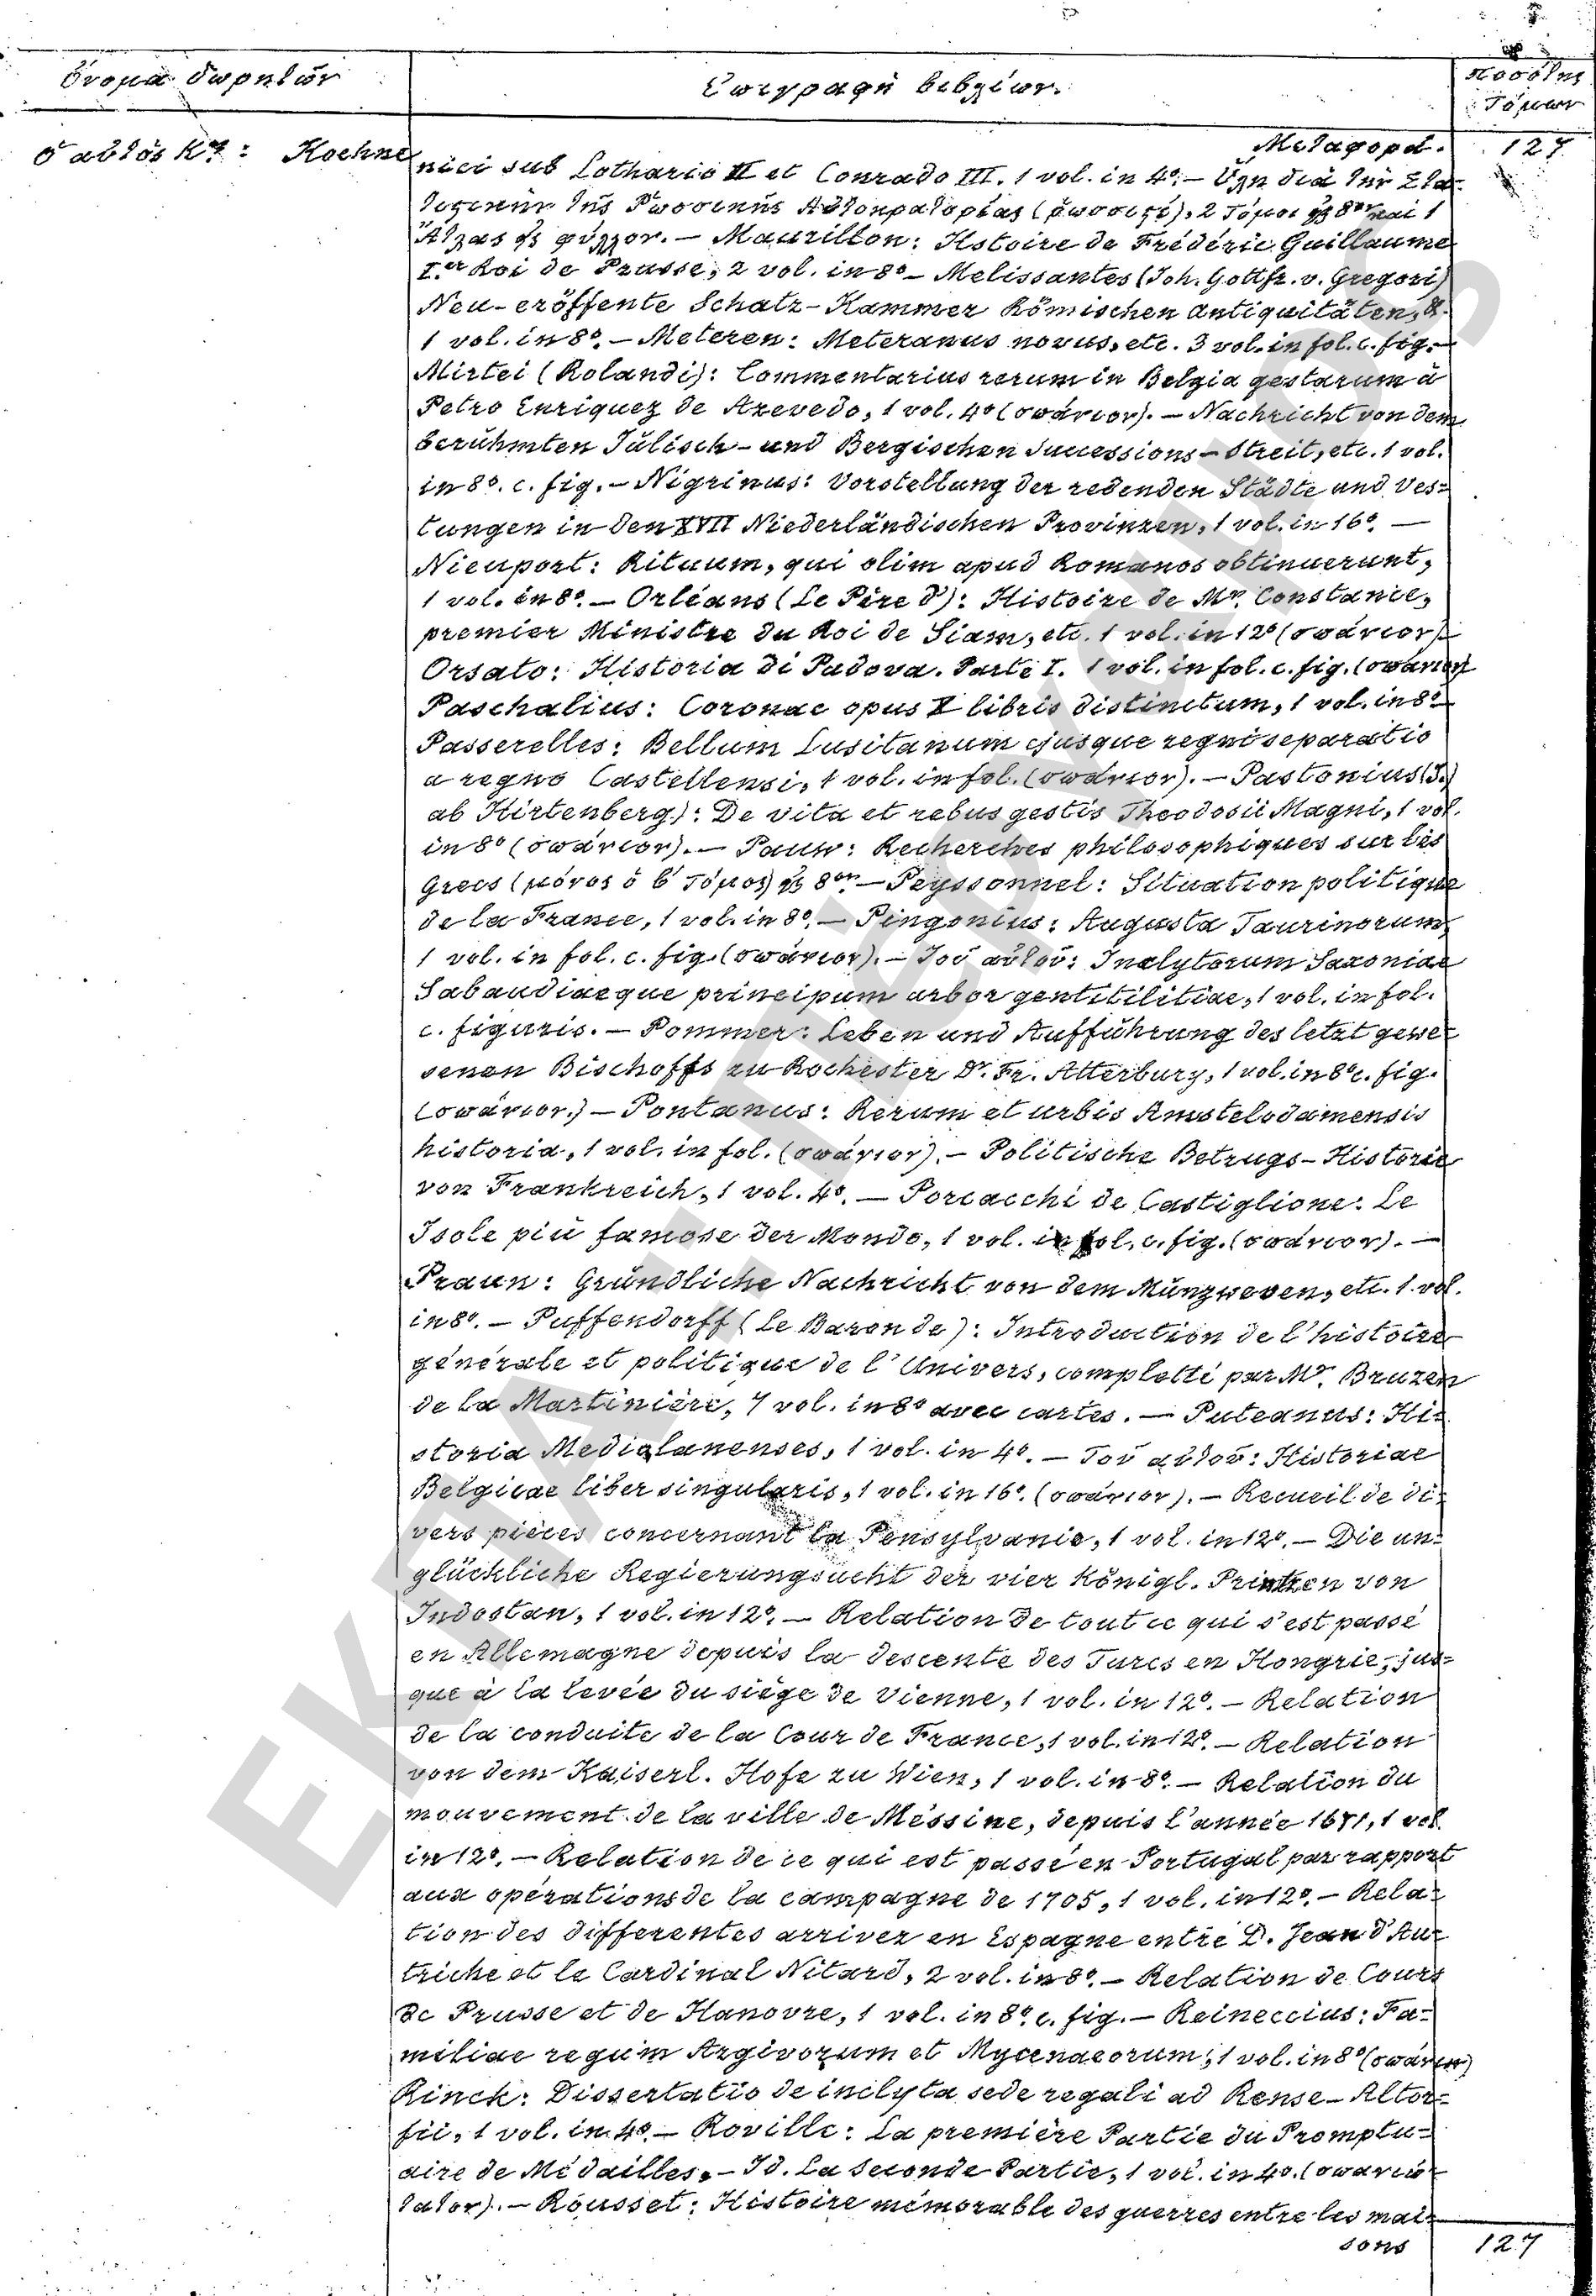 ὄνομα δωρητῶν
Ἐπιγραφὴ βιβλίων.
Ποσότης
Τόμων
Μεταφορά. 127
ὁ αὐτὸς Κος: Koehne
nici sub Lothario II et Conrado III. 1 vol. in 4o. – Ὕλη διὰ τὴν Στα-
τιστικὴν τῆς Ῥωσσικῆς Αὐτοκρατορίας (ῥωσσιστί), 2 Τόμοι εἰς 8ον καὶ 1
Ἄτλας εἰς φύλλον. – Mauvillon: Hstoire de Frédéric Guillaume
I.er Roi de Prusse, 2 vol. in 8o – Melissantes (Joh. Gottfr. v. Gregori)
Neu-eröffente Schatz-Kammer Römischen Antiquitäten, &.
1 vol. in 8o. – Meteren: Meteranus novus, etc. 3 vol. in fol. c. fig. –
Mirtei (Rolandi): Commentarius rerum in Belgia gestarum à
Petro Enriquez de Azevedo, 1 vol. 4o (σπάνιον). – Nachricht von dem
berühmten Jülisch- und Bergischen Successions-Streit, etc. 1 vol.
in 8o. c. fig. – Nigrinus: Vorstellung der redenden Städte und Ves=
tungen in den XVII Niederländischen Provinzen, 1 vol. in 16o. –
Nieuport: Rituum, qui olim apud Romanos obtinuerunt,
1 vol. in 8o. – Orléans (Le Père d'): Histoire de Mr. Constance,
premier Ministre du Roi de Siam, etc. 1 vol. in 12o (σπάνιον) –
Orsato: Historia di Padova. Parte I. 1 vol. in fol. c. fig. (σπάνιον)
Paschalius: Coronae opus X libris distinctum, 1 vol. in 8o –
Passerelles: Bellum Lusitanum ejusque regni separatio
a regno Castellensi, 1 vol. in fol. (σπάνιον). – Pastonius (J.
ab Hirtenberg): De vita et rebus gestis Theodosii Magni, 1 vol.
in 8o (σπάνιον). – Pauw: Recherches philosophiques sur les
Grecs (μόνος ὁ β' τόμος) εἰς 8ον – Peyssonnel: Situation politique
de la France, 1 vol. in 8o. – Pingonius: Augusta Taurinorum,
1 vol. in fol. c. fig. (σπάνιον). – Τοῦ αὐτοῦ: Inclytorum Saxoniae
Sabaudiaeque principum arbor gentitilitiae, 1 vol. in fol.
c. figuris. – Pommer: Leben und Aufführung des letzt gewe=
senen Bischoffs zu Rochester Dr. Fr. Atterbury, 1 vol. in 8o c. fig.
(σπάνιον.) – Pontanus: Rerum et urbis Amstelodamensis
historia, 1 vol. in fol. (σπάνιον). – Politische Betrugs-Historie
von Frankreich, 1 vol. 4o. – Porcacchi de Castiglione: Le
Isole più famose der Mondo, 1 vol. in fol. c. fig. (σπάνιον). –
Praun: Gründliche Nachricht von dem Münzwesen, etc. 1. vol.
in 8o. – Puffendorff (Le Baron de): Introduction de l'histoire
générale et politique de l'Univers, completté par Mr. Bruzen
de la Martinière, 7 vol. in 8o avec cartes. – Puteanus: Hi=
storia Mediolanenses, 1 vol. in 4o. – Τοῦ αὐτοῦ: Historiae
Belgicae liber singularis, 1 vol. in 16o. (σπάνιον). – Recueil de di=
vers pièces concernant la Pensylvanie, 1 vol. in 12o. – Die un=
glückliche Regierungsucht der vier Königl. Printzen von
Indostan, 1 vol. in 12o. – Relation de tout ce qui s'est passé
en Allemagne depuis la descente des Turcs en Hongrie, jus=
que à la levée du siège de Vienne, 1 vol. in 12o. – Relation
de la conduite de la Cour de France, 1 vol. in 12o. – Relation
von dem Kaiserl. Hofe zu Wien, 1 vol. in 8o. – Relation du
mouvement de la ville de Messine, depuis l'année 1671, 1 vol.
in 12o. – Relation de ce qui est passé en Portugal par rapport
aux opérations de la campagne de 1705, 1 vol. in 12o. – Rela=
tion des differentes arrivez en Espagne entre D. Jean d'Au=
triche et le Cardinal Nitard, 2 vol. in 8o. – Relation de Cours
de Prusse et de Hanovre, 1 vol. in 8o. c. fig. – Reineccius: Fa=
miliae regum Argivorum et Mycenaeorum, 1 vol. in 8o (σπάνιον)
Rinck: Dissertatio de inclyta sede regali ad Rense – Altor=
fii, 1 vol. in 4o. – Roville: La première Partie du Promptu=
aire de Médailles. – Id. La seconde Partie, 1 vol. in 4o. (σπανιώ-
τατον). – Rousset: Histoire mémorable des guerres entre les mai=
sons
127